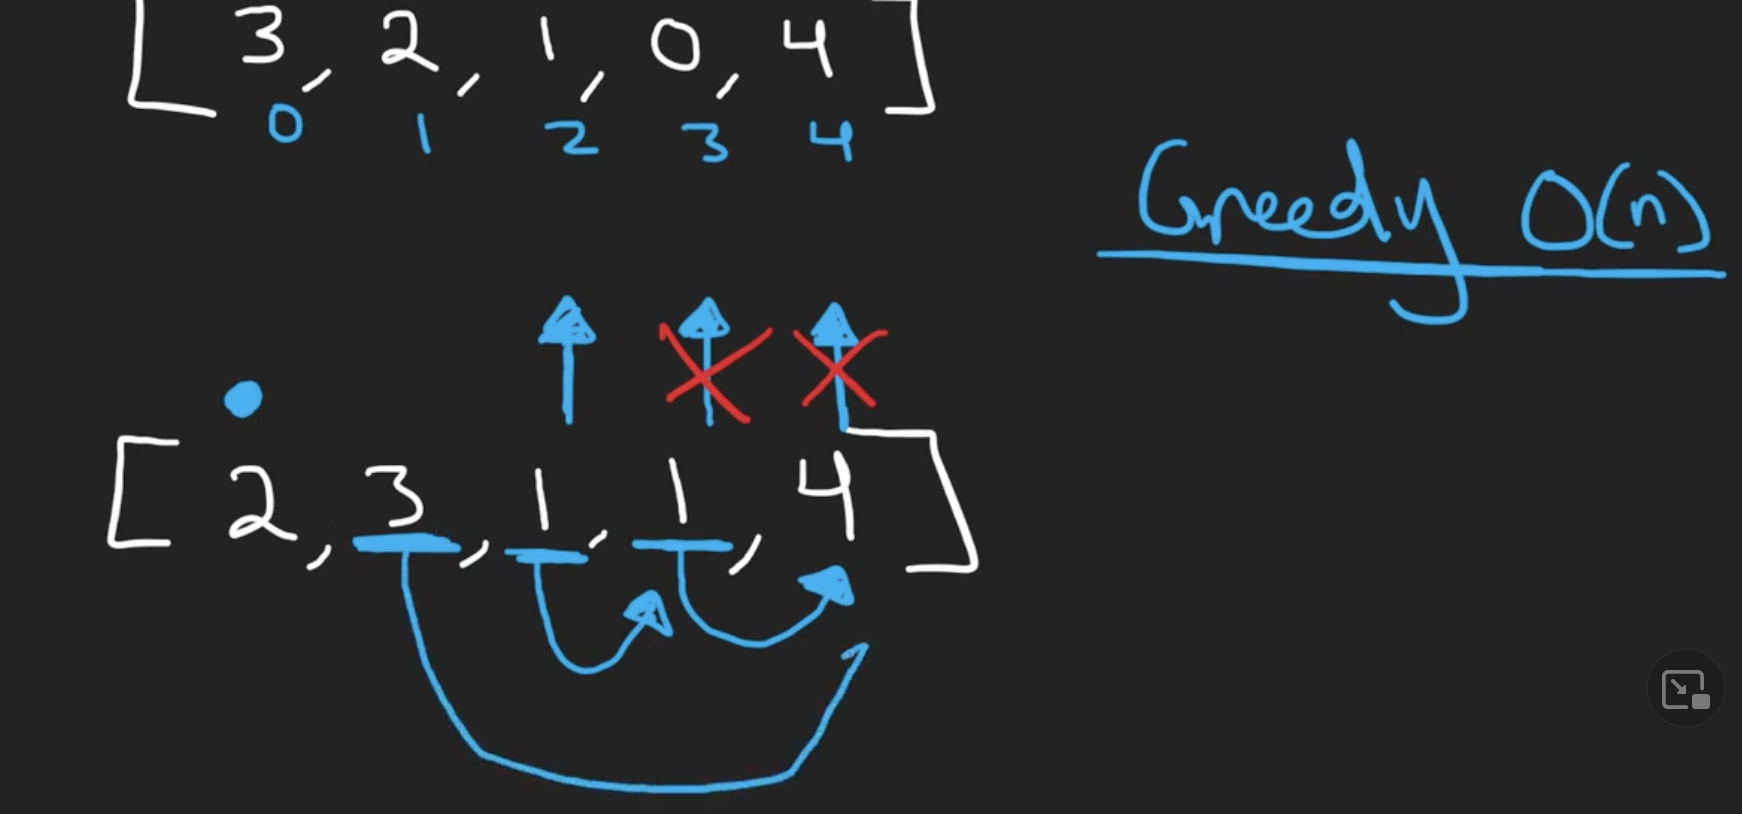 [3, 2, 1, 0, 4]
0 1 2 3 4
Greedy O(n)
[2, 3, 1, 1, 4]